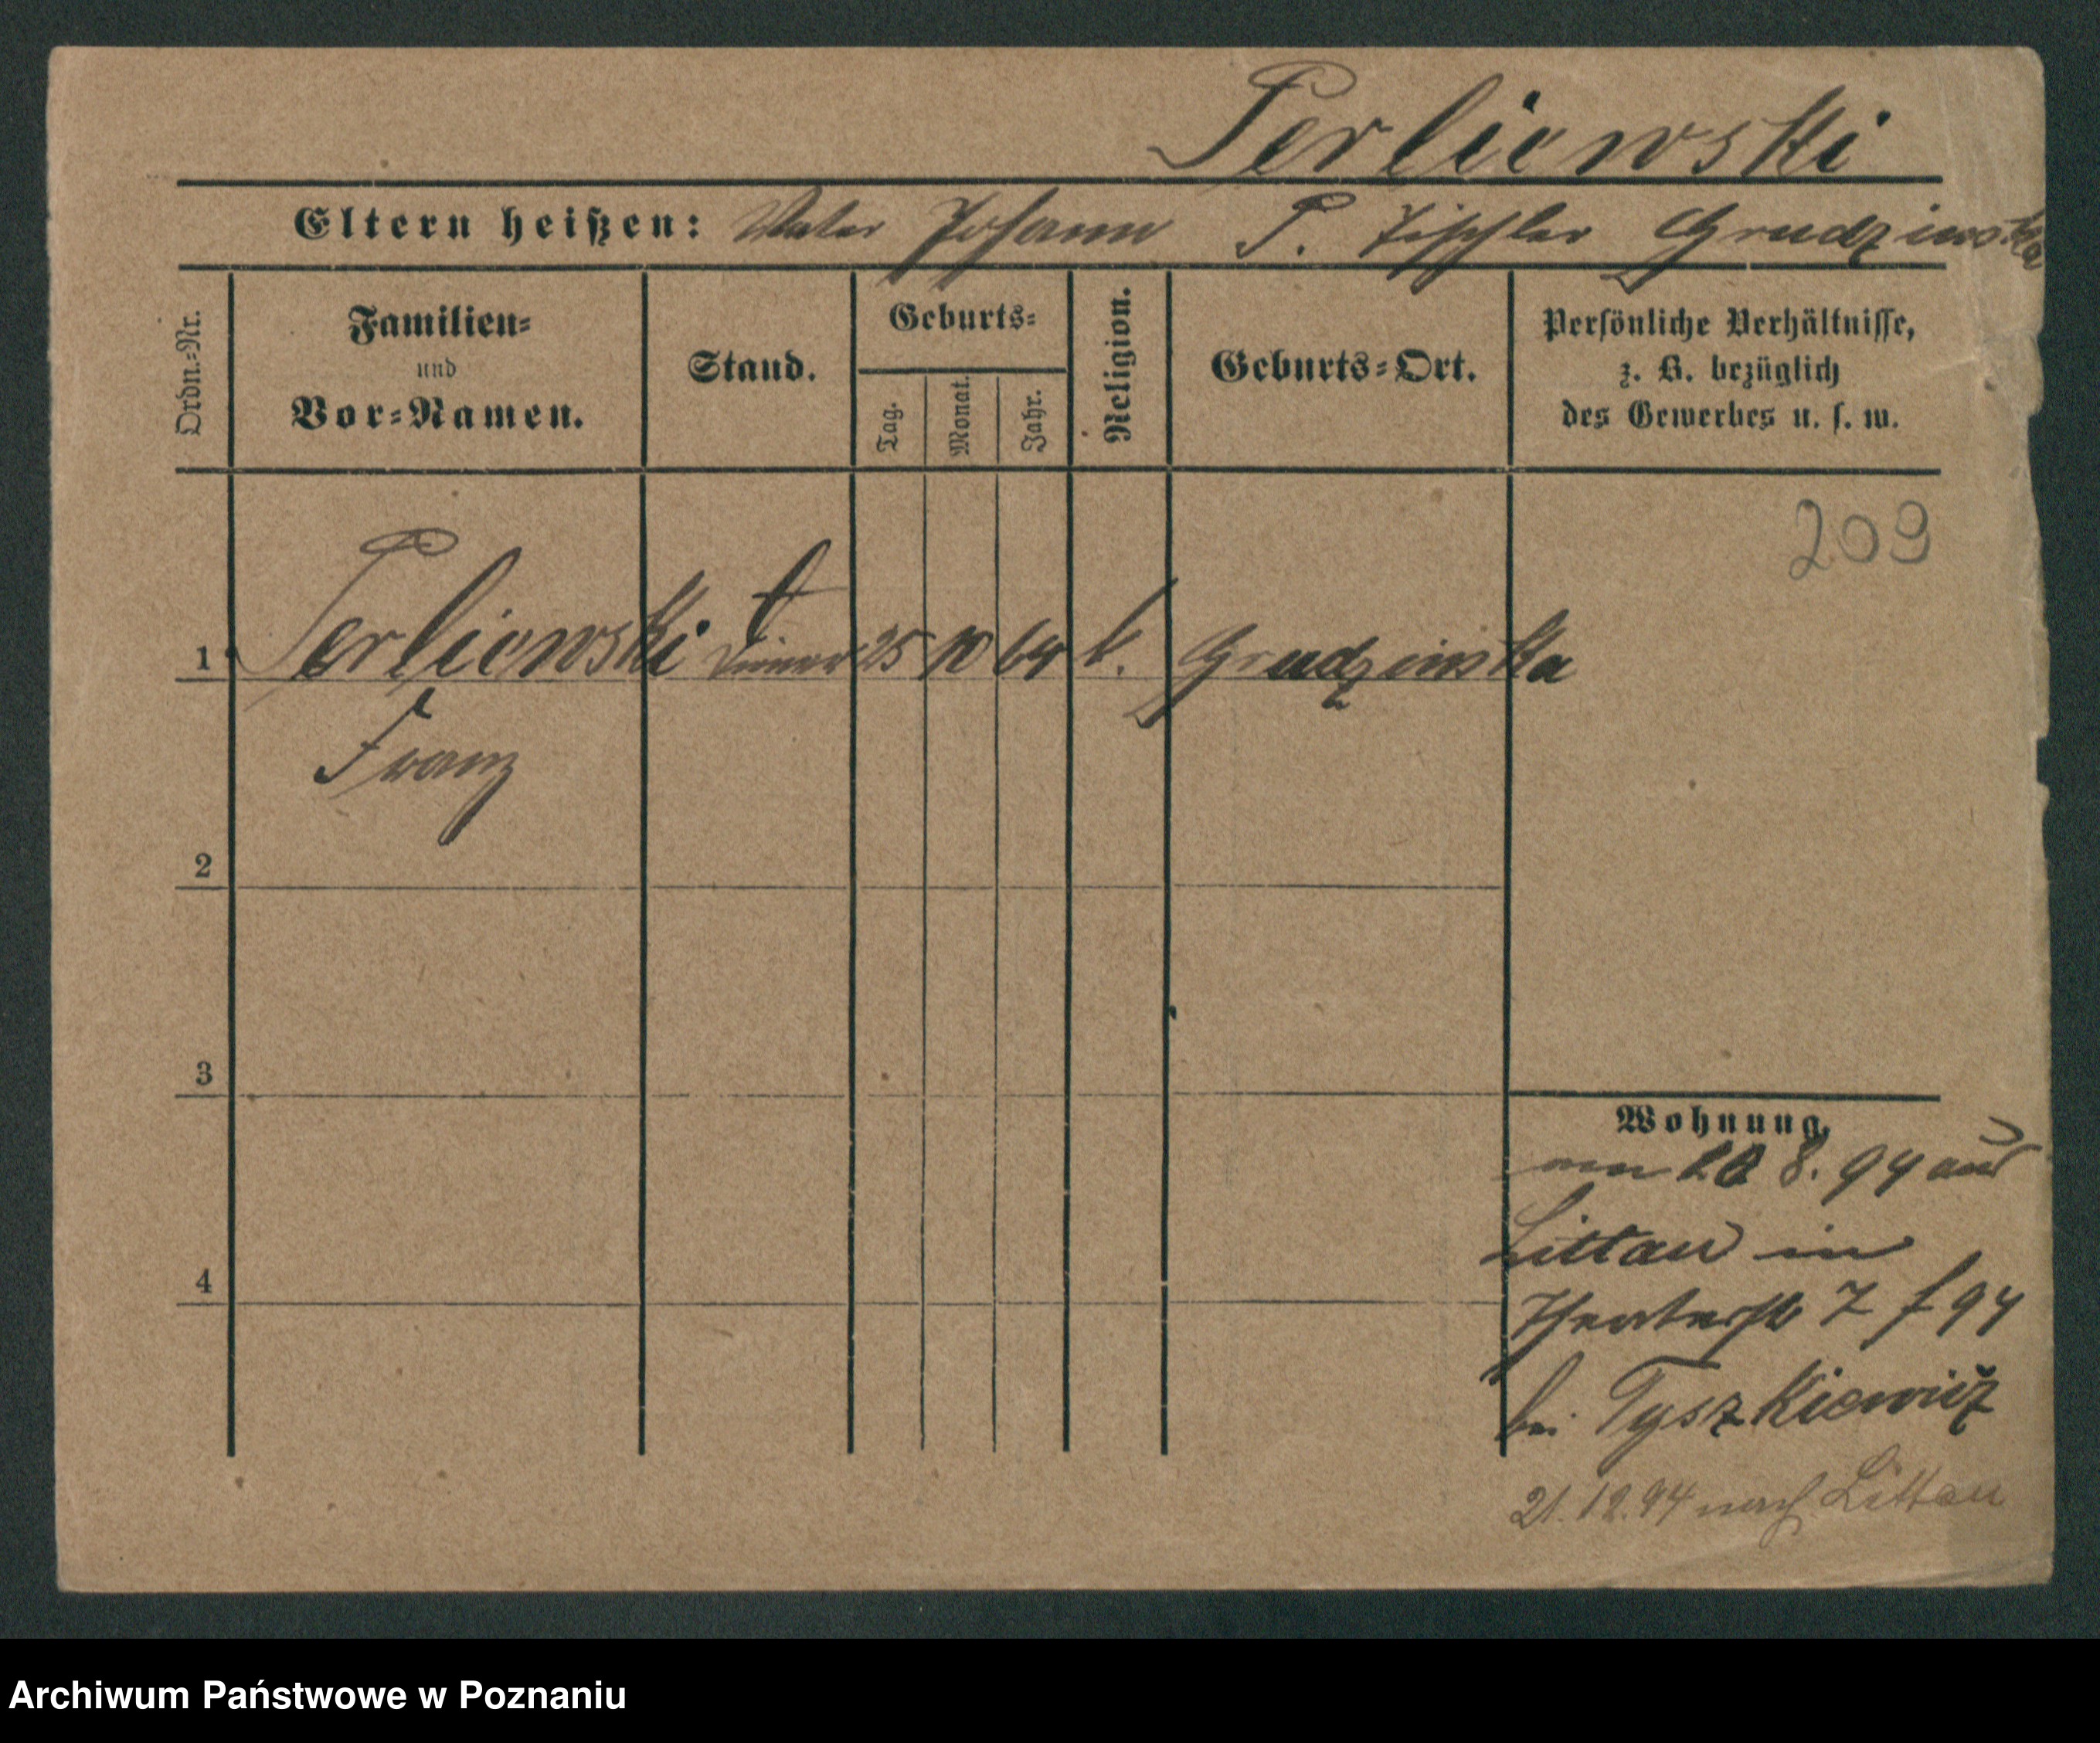 Perliewski
Eltern heißen: Vater Johann P. Tischler Grudzinska
Ordn.-Nr.
Familien-
und
Vor-Namen.
Stand.
Geburts-
Tag.
Monat.
Jahr.
Religion.
Geburts-Ort.
Persönliche Verhältnisse,
z. B. bezüglich
des Gewerbes u. s. w.
209
1 Perliewski Diener 25 10 64 k. Grudzinska
Franz
2
3
4
Wohnung.
8. 94 aus
Littau in
Theaterstr 7 f 94
bei Tyszkiewicz
21.12.94 nach Littau
Archiwum Państwowe w Poznaniu